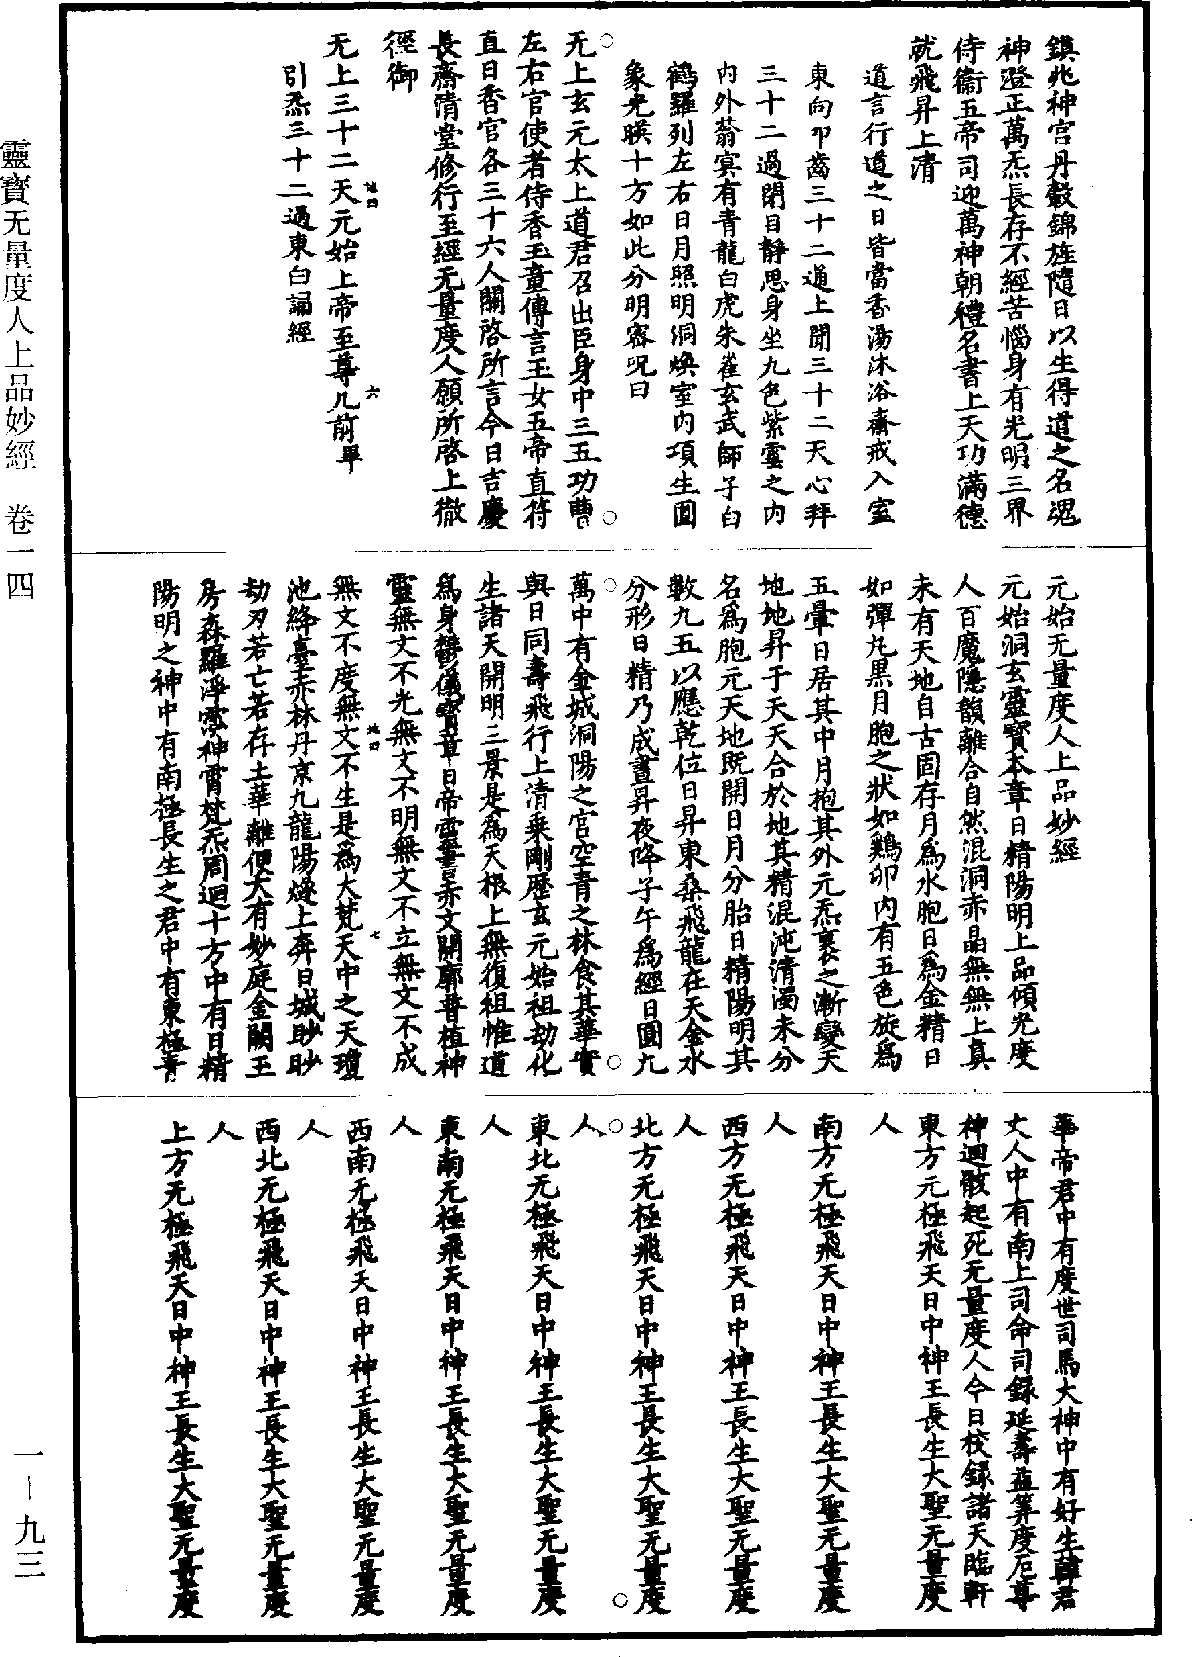 鎮兆神宮丹轂錦旌隨日以生得道之名魂
神澄正萬炁長存不經苦惱身有光明三界
侍衛五帝司迎萬神朝禮名書上天功滿德
就飛昇上清
道言行道之日皆當香湯沐浴齋戒入室
東向叩齒三十二通上聞三十二天心拜
三十二過閉目靜思身坐九色紫雲之內
內外蓊寞有青龍白虎朱雀玄武師子白
鶴羅列左右日月照明洞煥室內項生圓
象光暎十方如此分明密呪曰
无上玄元太上道君召出臣身中三五功曹
左右官使者侍香玉童傳言玉女五帝直符
直日香官各三十六人關啓所言今日吉慶
長齋清堂修行至經无量度人願所啓上徹
徑御
无上三十二天元始上帝至尊几前畢
地四
六
引炁三十二過東向誦經
元始无量度人上品妙經
元始洞玄靈寶本章日精陽明上品傾光度
人百魔隱韻離合自然混洞赤晶無無上真
未有天地自古固存月為水胞日為金精日
如彈丸黑月胞之狀如鷄卵內有五色旋為
五暈日居其中月抱其外元炁裹之漸變天
地地昇于天天合於地其精混沌清濁未分
名為胞元天地既開日月分胎日精陽明其
數九五以應乾位日昇東桑飛龍在天金水
分形日精乃成晝昇夜降子午為經日圓九
萬中有金城洞陽之宮空青之林食其華實
與日同壽飛行上清乘剛歷玄元始祖劫化
生諸天開明三景是為天根上無復祖惟道
為身鬱儀寶章日帝靈書赤文開廓普植神
靈無文不光無文不明無文不立無文不成
無文不度無文不生是為大梵天中之天瓊
地四
七
池絳臺赤林丹京九龍陽燧上奔日城眇眇
劫刃若亡若存土華離便大有妙庭金闕玉
房森羅淨雲神霄梵炁周迴十方中有日精
陽明之神中有南極長生之君中有東極青
華帝君中有度世司馬大神中有好生韓君
丈人中有南上司命司錄延壽益筭度厄尊
神迴骸起死无量度人今日校錄諸天臨軒
東方无極飛天日中神王長生大聖无量度
人
南方无極飛天日中神王長生大聖无量度
人
西方无極飛天日中神王長生大聖无量度
人
北方无極飛天日中神王長生大聖无量度
人
東北无極飛天日中神王長生大聖无量度
人
東南无極飛天日中神王長生大聖无量度
人
西南无極飛天日中神王長生大聖无量度
人
西北无極飛天日中神王長生大聖无量度
人
上方无極飛天日中神王長生大聖无量度
靈寶无量度人上品妙經　卷一四
一－九三